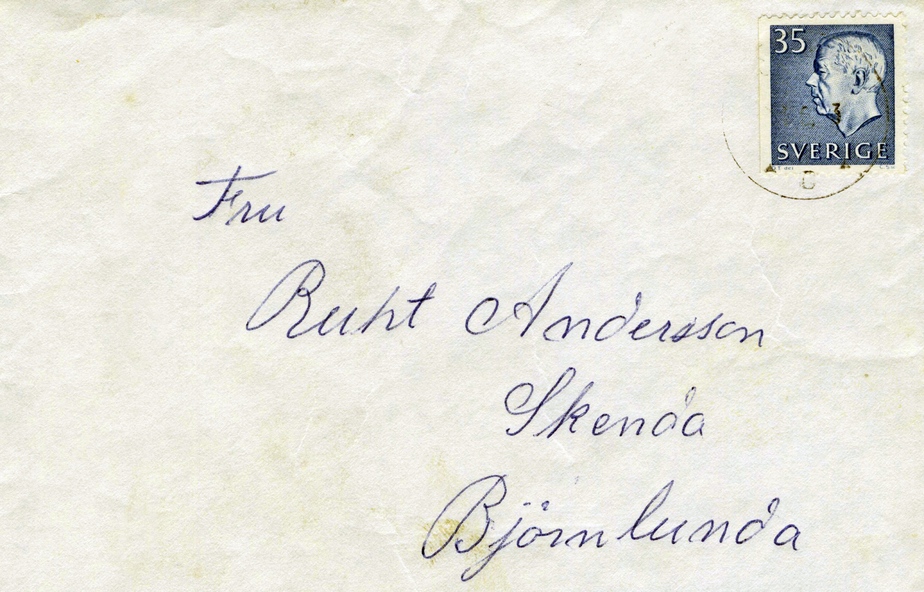 35
SVERIGE
Fru
Ruht Andersson
Skenda
Björnlunda